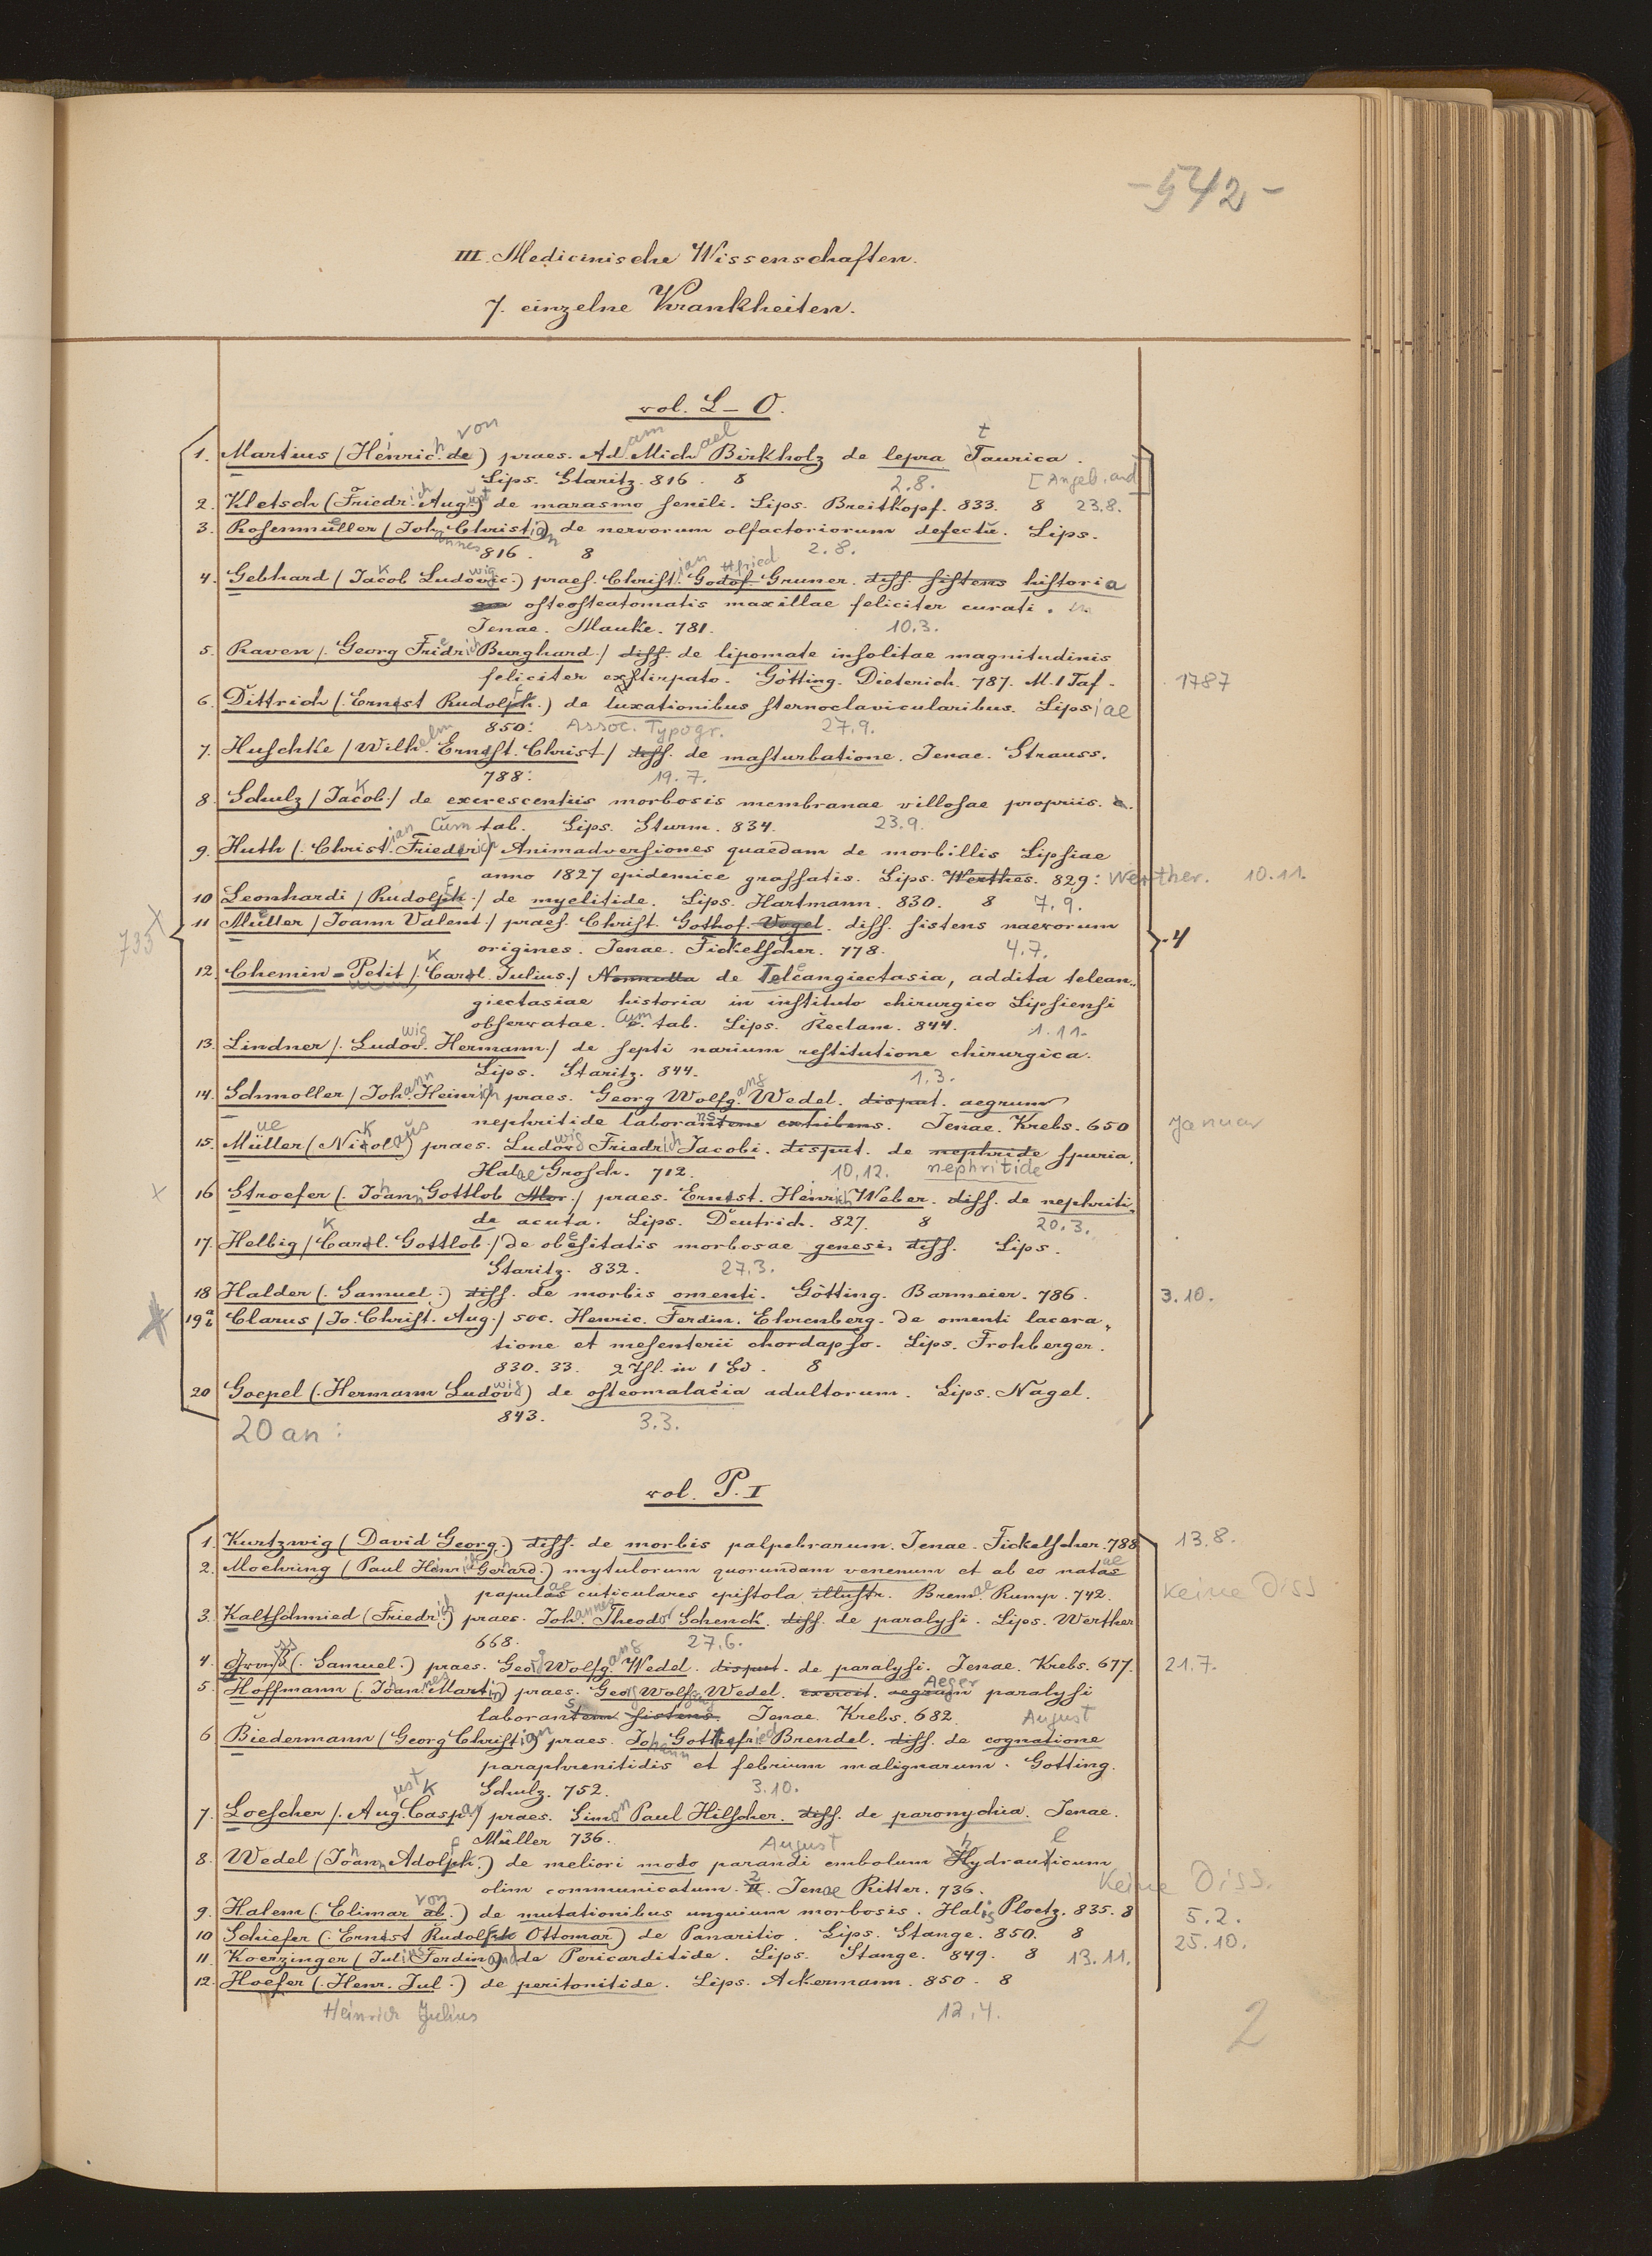 -542-
III. Medicinische Wissenschaften.
7. einzelne Krankheiten.
vol. L-O.
1. Martius (Heinrich von de) praes. Adam Michael Birkholz de lepra Taurica.
Lips. Staritz. 816. 8 2.8. [Angeb. and]
2. Kletsch (Friedrich August) de marasmo senili. Lips. Breitkopf. 833. 8 23.8.
3. Rosenmüller (Johannes Christian) de nervorum olfactoriorum defectu. Lips.
816. 8 2.8.
4. Gebhard (Jacob Ludovic.) praes. Christian Godof. Gruner. diss. sistens historia
osteosteatomatis maxillae feliciter curati.
Jenae. Mauke. 781. 10.3.
5. Raven (Georg Friedrich Burghard) diss. de lipomate insolitae magnitudinis
feliciter exstirpato. Götting. Dieterich. 787. M. 1 Taf. 1787
6. Dittrich (Ernst Rudolf) de luxationibus sternoclavicularibus. Lipsiae
850. Assoc. Typogr. 27.9.
7. Huschke (Wilhelm Ernst. Christ) diss. de masturbatione. Jenae. Strauss.
788. 19.7.
8. Schulz (Jakob) de excrescentiis morbosis membranae villosae propriis. c.
Cum tab. Lips. Sturm. 834. 23.9.
9. Huth (Christian Friedrich) Animadversiones quaedam de morbillis Lipsiae
anno 1827 epidemice grassatis. Lips. Werthes. 829: Werther. 10.11.
10 Leonhardi (Rudolf) de myelitide. Lips. Hartmann. 830. 8 7.9.
735 X 11 Müller (Joann Valent) praes. Christ. Gothof. Vogel. diss. sistens naevorum
origines. Jenae. Fickelscher. 778. 4.7. 4
12. Chemin-Petit (Karl Julius) Nonnulla de Teleangiectasia, addita telean-
giectasiae historia in instituto chirurgico Lipsiensi
observatae. Cum tab. Lips. Reclam. 844. 1.11.
13. Lindner (Ludwig Hermann) de septi narium restitutione chirurgica.
Lips. Staritz. 844. 1.3.
14. Schmoller (Johann Heinrich praes. Georg Wolfgang Wedel. disput. aegrum
nephritide laborantem exhibens. Jenae. Krebs. 650 Januar
15. Müller (Nikolaus) praes. Ludowig Friedrich Jacobi. disput. de nephride spuria.
Halae Grosch. 712. 10.12. nephritide
x 16 Stroefer (Johann Gottlob) praes. Ernst. Heinrich Weber. diss. de nephriti-
de acuta. Lips. Deutrich. 827. 8 20.3.
17. Helbig (Karl. Gottlob) de obesitatis morbosae genesi, diss. Lips.
Staritz. 832. 27.3.
18 Halder (Samuel) diss. de morbis omenti. Götting. Barmeier. 786. 3.10.
19a Clarus (Jo. Christ. Aug.) soc. Henric. Ferdin. Ehrenberg. de omenti lacera-
tione et mesenterii chordapso. Lips. Frohberger.
830. 33. 2 Thl. in 1 Bd. 8
20 Goepel (Hermann Ludowig) de osteomalacia adultorum. Lips. Nagel.
843. 3.3.
20 an:
vol. P. I
1. Kurtzwig (David Georg.) diss. de morbis palpebrarum. Jenae. Fickelscher. 788 13.8.
2. Moehring (Paul Heinrich Gerhard.) mytulorum quorundam venenum et ab eo natas
papulas cuticulares epistola illustr. Bremae Rump. 742. Keine Diss
3. Kaltschmied (Friedrich) praes. Johannes Theodor Schenck. diss. de paralysi. Lips. Werther
668. 27.6.
4. Gross (Samuel.) praes. Georg Wolfgang Wedel. disput. de paralysi. Jenae. Krebs. 677. 21.7.
5. Hoffmann (Johannes Martin) praes. Georg Wolfgang Wedel. exercit. aegrum Aeger paralysi
laborantem sistens. Jenae. Krebs. 682. August
6 Biedermann (Georg Christian) praes. Johann Gottfried Brendel. diss. de cognatione
paraphrenitidis et febrium malignarum. Gotting.
Schulz. 752. 3.10.
7. Loescher (August Caspar) praes. Simon Paul Hilscher. diss. de paronychia. Jenae.
Müller 736. August
8. Wedel (Johann Adolf) de meliori modo parandi embolum Hydraulicum
olim communicatum. II. 2 Jenae Ritter. 736. Keine Diss.
9. Halem (Elimar von ab.) de mutationibus unguium morbosis. Halis Ploetz. 835. 8 5.2.
10 Schiefer (Ernst Rudolf Ottomar) de Panaritio. Lips. Stange. 850. 8 25.10.
11. Koerzinger (Julius Ferdinand) de Pericarditide. Lips. Stange. 849. 8 13.11.
12. Hoefer (Henr. Jul.) de peritonitide. Lips. Ackermann. 850. 8
Heinrich Julius 12.4.
2